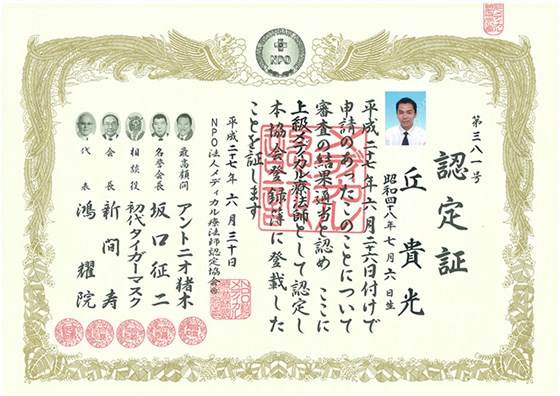 認定証
第三八一号
丘貴光
昭和四八年七月六日生
平成二十七年六月二六日付けで
申請のあったこのことについて
審査の結果適当と認め ここに
上級メディカル療法師として認定し
本協会登録簿に登載した
ことを証します
平成二十七年 六月三十日
NPO法人メディカル療法師認定協会
最高顧問 アントニオ猪木
名誉会長 坂口征二
相談役 初代タイガーマスク
会長 新間寿
代表 鴻耀院
NPO